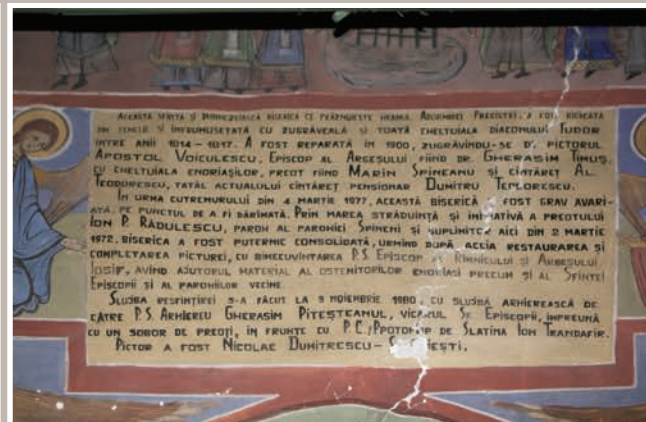 ACEASTĂ SFÎNTĂ ȘI DUMNEZEIASCĂ BISERICĂ CE PRĂZNUIEȘTE HRAMUL ADORMIREI PRECISTEI, A FOST RIDICATĂ
DIN TEMELIE ȘI ÎNFRUMUSEȚATĂ CU ZUGRĂVEALĂ ȘI TOATĂ CHELTUIALA DIACONULUI TUDOR
ÎNTRE ANII 1814-1817. A FOST REPARATĂ IN 1900, ZUGRĂVINDU-SE DE PICTORUL
APOSTOL VOICULESCU, EPISCOP AL ARGEȘULUI FIIND DR. GHERASIM TIMUȘ,
CU CHELTUIALA ENORIAȘILOR, PREOT FIIND MARIN SPINEANU ȘI CÎNTĂREȚ AL.
TEODORESCU, TATĂL ACTUALULUI CÎNTĂREȚ PENSIONAR DUMITRU TEODORESCU.
IN URMA CUTREMURULUI DIN 4 MARTIE 1977, ACEASTĂ BISERICĂ A FOST GRAV AVARI-
ATĂ, PE PUNCTUL DE A FI DĂRÎMATĂ. PRIN MAREA STRĂDUINȚĂ ȘI INIȚIATIVĂ A PREOTULUI
ION P. RĂDULESCU, PAROH AL PAROHIEI SPINENI ȘI SUPLINITOR AICI DIN 2 MARTIE
1972, BISERICA A FOST PUTERNIC CONSOLIDATĂ, URMIND DUPĂ ACEIA RESTAURAREA ȘI
COMPLETAREA PICTUREI, CU BINECUVÎNTAREA P.S. EPISCOP AL RIMNICULUI ȘI ARGEȘULUI
IOSIF, AVIND AJUTORUL MATERIAL AL OSTENITORILOR ENORIAȘI PRECUM ȘI AL SFINTEI
EPISCOPII ȘI AL PAROHIILOR VECINE.
SLUJBA RESFINȚIREI S-A FĂCUT LA 9 NOIEMBRIE 1980, CU SLUJBĂ ARHIEREASCĂ DE
CĂTRE P.S. ARHIEREU GHERASIM PITEȘTEANUL, VICARUL SF. EPISCOPII, ÎMPREUNĂ
CU UN SOBOR DE PREOȚI, ÎN FRUNTE CU P.C. PROTOPOP DE SLATINA ION TRANDAFIR.
PICTOR A FOST NICOLAE DUMITRESCU-